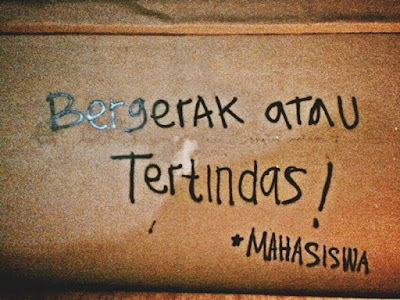 Bergerak atau
Tertindas!
*MAHASISWA